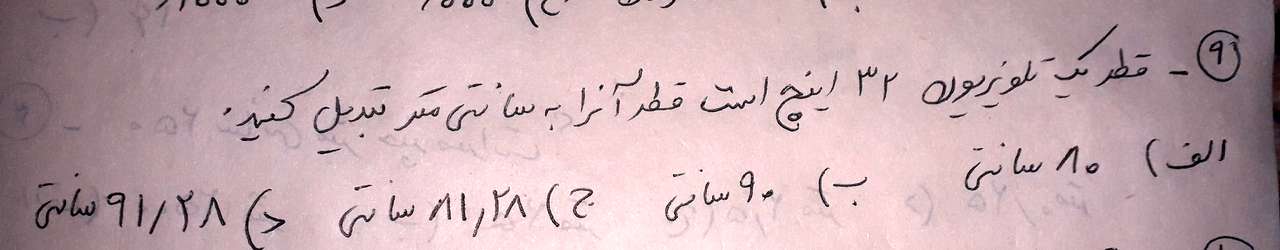 ۹- قطر یک تلوزیون ۳۲ اینچ است قطر آنرا به سانتی متر تبدیل کنید.
الف) ۸۰ سانتی ب) ۹۰ سانتی ج) ۸۱٫۲۸ سانتی د) ۹۱٫۲۸ سانتی